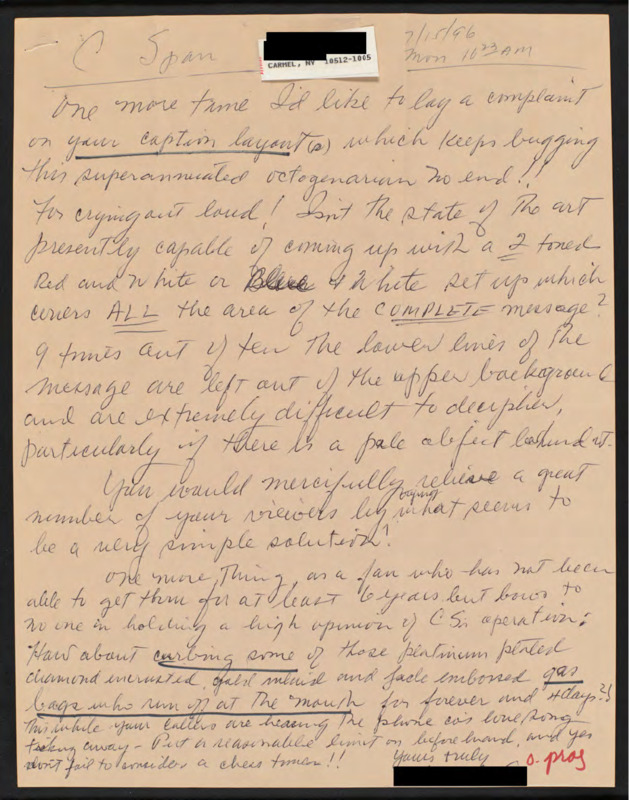 C Span
CARMEL, NY 10512-1005
7/15/96
Mon 10 23 AM
One more time I'd like to lay a complaint
on your caption layout(s) which keeps bugging
this superannuated octogenarian no end!!
For crying out loud! Isn't the state of the art
presently capable of coming up with a 2 toned
Red and White or Blue & White set up which
covers ALL the area of the COMPLETE message?
9 times out of ten the lower lines of the
message are left out of the upper background
and are extremely difficult to decipher,
particularly if there is a pale object behind it.
You would mercifully relieve a great
number of your viewers by what seems to
be a very simple solution!
One more thing, as a fan who has not been
able to get thru for at least 6 years but bows to
no one in holding a high opinion of CS's operation:
How about curbing some of those platinum plated
diamond encrusted, gold inlaid and jade embossed gas
bags who run off at the mouth for forever and 4 days?!
This while your callers are hearing the phone co's love song
ticking away - Put a reasonable limit on beforehand, and yes
don't fail to consider a chess timer!!
Yours truly
O. pros